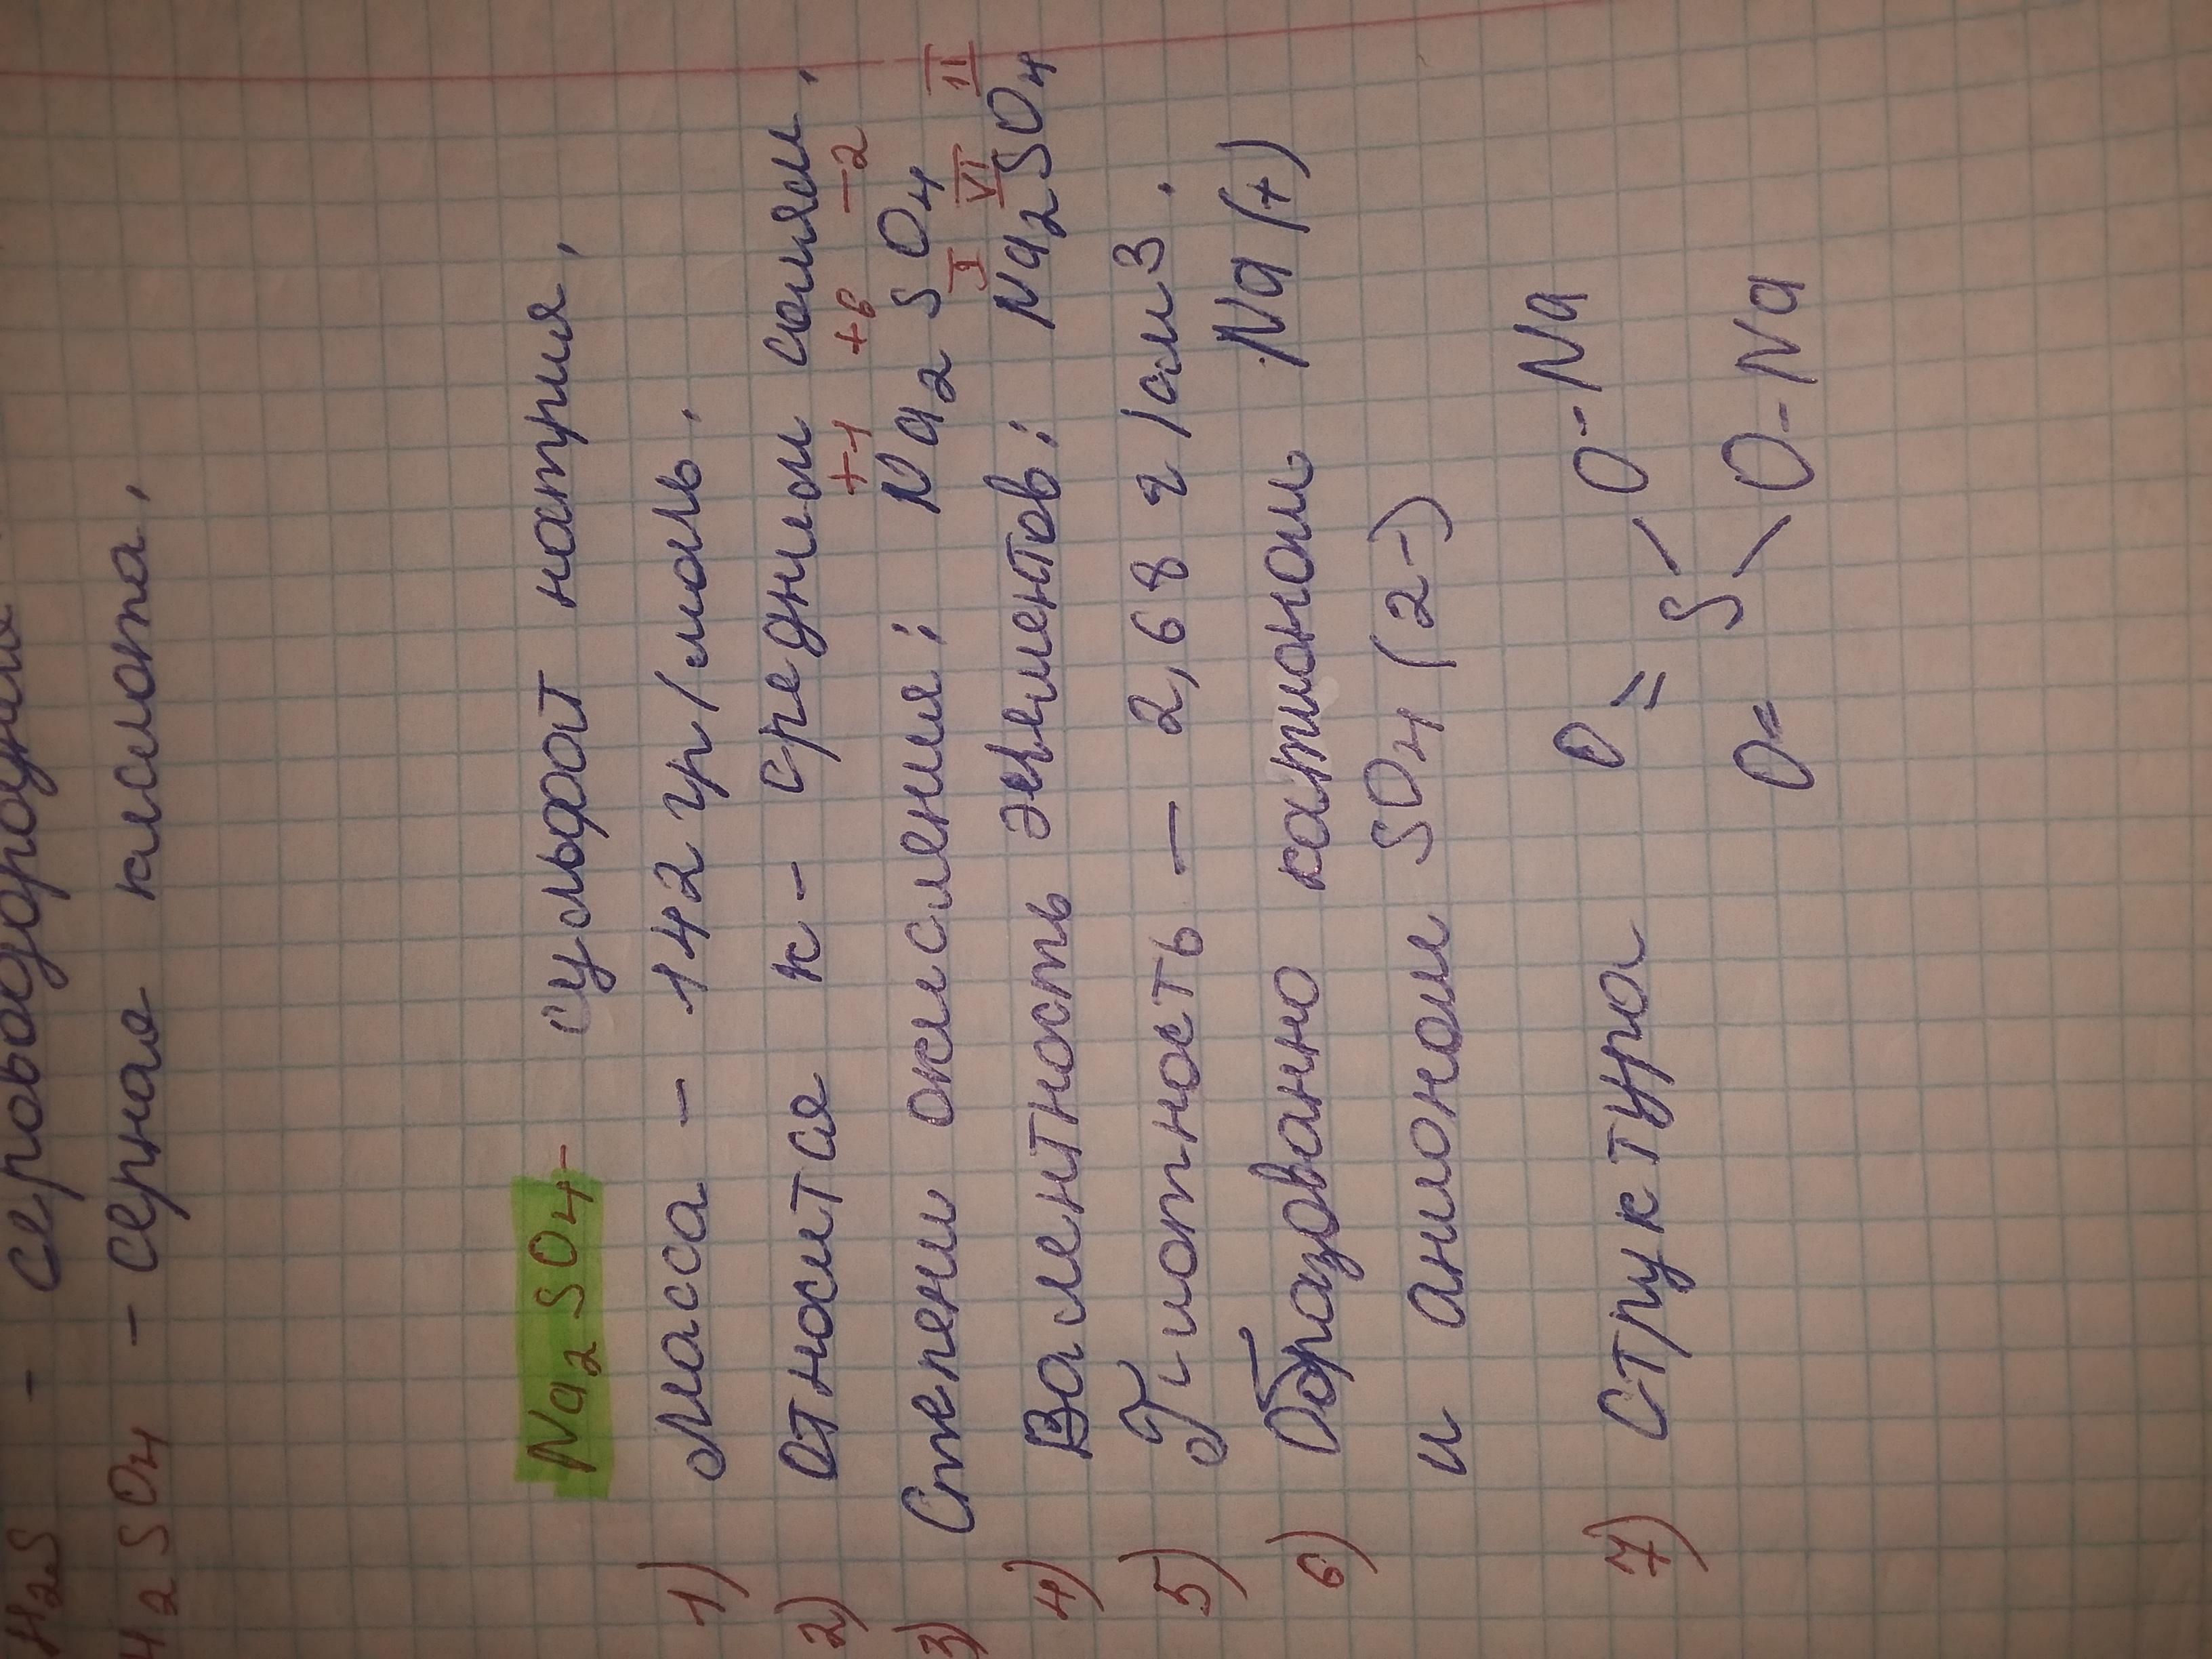 H2S - сероводородная
H2SO4 - серная кислота.
Na2SO4 - сульфат натрия.
1) Масса - 142 гр/моль.
2) Относится к - средним солям.
+1 +6 -2
3) Степени окисления: Na2SO4
I VI II
4) Валентность элементов: Na2SO4
5) Плотность - 2,68 г/см3.
6) Образованно катионом Na(+)
и анионом SO4(2-)
7) Структура O O-Na
= S
O= O-Na